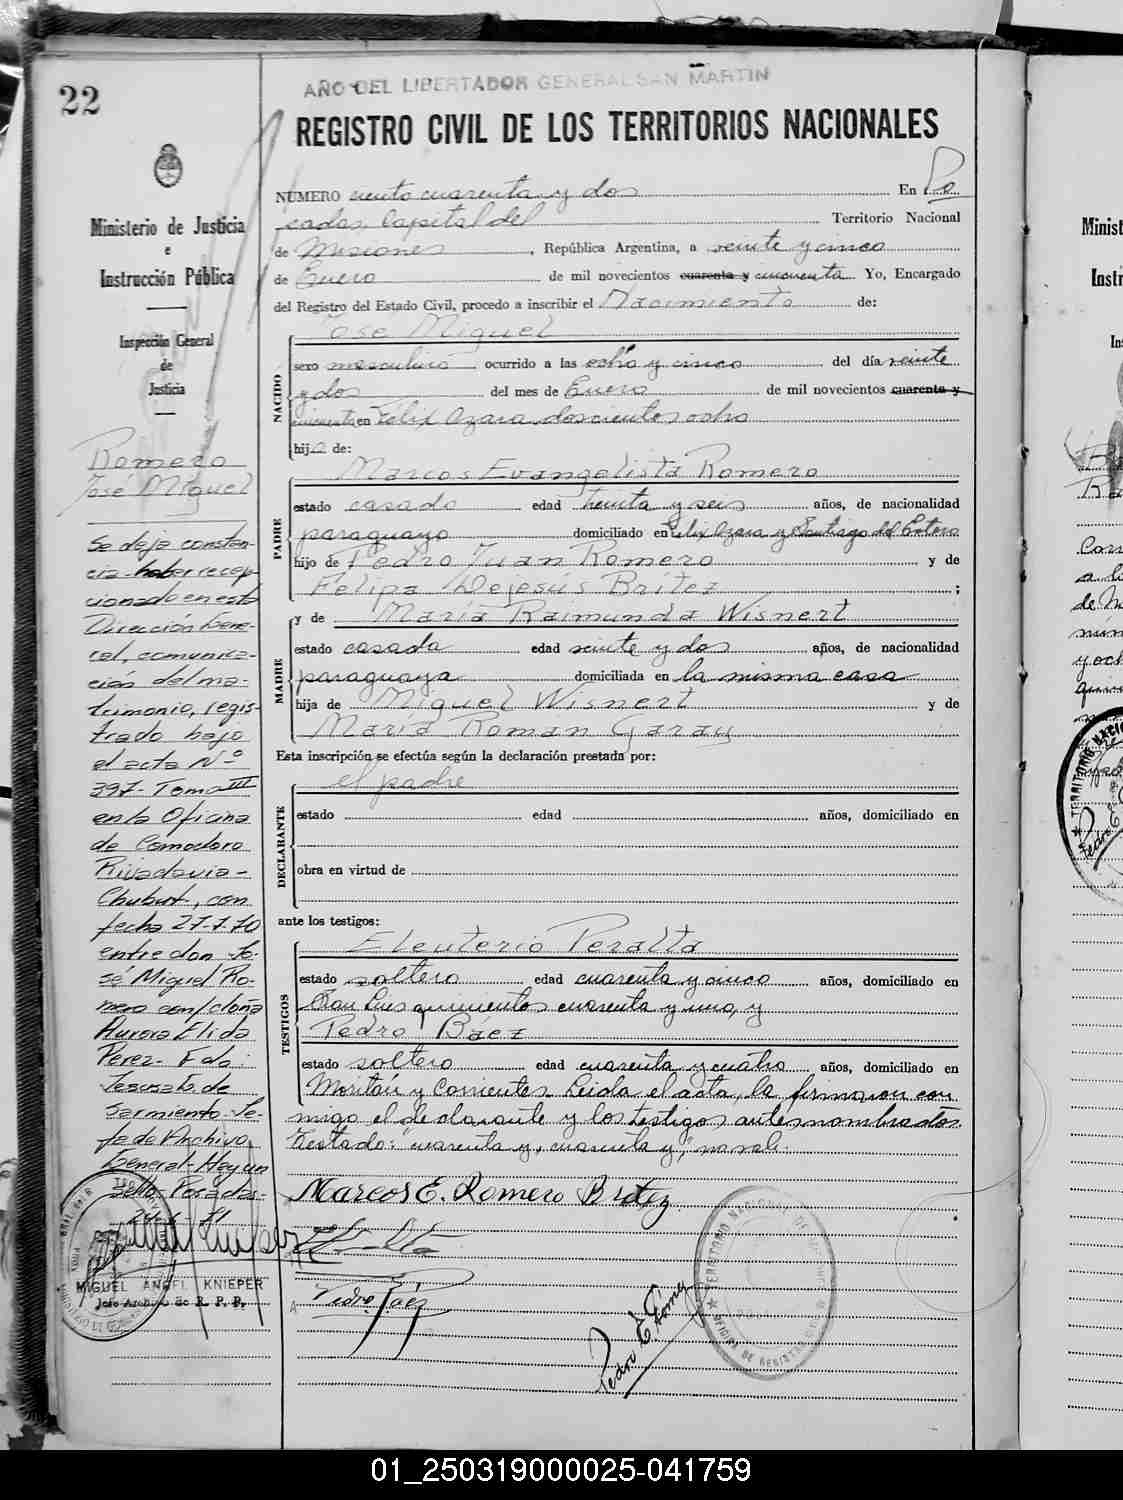 22
AÑO DEL LIBERTADOR GENERAL SAN MARTIN
REGISTRO CIVIL DE LOS TERRITORIOS NACIONALES
Ministerio de Justicia
e
Instrucción Pública
Inspección General
de
Justicia
Romero
José Miguel
Se deja constan-
cia haber recep-
cionado en esta
Dirección Gene-
ral, comunica-
ción del ma-
trimonio, regis-
trado bajo
el acta Nº
397- Tomo III
en la Oficina
de Comodoro
Rivadavia-
Chubut, con
fecha 27-7-70
entre don Jo-
sé Miguel Ro-
mero con/ doña
Aurora Elida
Perez- Fdo:
de
Sarmiento- Je-
fe de Archivo
General- Hay un
sello- Posadas-
MIGUEL ANGEL KNIEPER
Jefe Archivo de R. P. P.
NUMERO ciento cuarenta y dos En Po
sadas, Capital del Territorio Nacional
de Misiones, República Argentina, a veinte y cinco
de Enero de mil novecientos cuarenta y cincuenta Yo, Encargado
del Registro del Estado Civil, procedo a inscribir el Nacimiento de:
NACIDO
José Miguel
sexo masculino ocurrido a las ocho y cinco del día veinte
y dos del mes de Enero de mil novecientos cuarenta y
cincuenta en Felix Azara doscientos ocho
hijo de:
PADRE
Marcos Evangelista Romero
estado casado edad treinta y seis años, de nacionalidad
paraguayo domiciliado en Felix Azara y Santiago del Estero
hijo de Pedro Juan Romero y de
Felipa Dejesús Britez ;
MADRE
y de María Raimunda Wisnert
estado casada edad veinte y dos años, de nacionalidad
paraguaya domiciliada en la misma casa
hija de Miguel Wisnert y de
María Roman Garay
Esta inscripción se efectúa según la declaración prestada por:
DECLARANTE
el padre
estado edad años, domiciliado en
obra en virtud de
ante los testigos:
TESTIGOS
Eleuterio Peralta
estado soltero edad cuarenta y cinco años, domiciliado en
San Luis quinientos cuarenta y uno, y
Pedro Baez
estado soltero edad cuarenta y cuatro años, domiciliado en
Moritán y Corrientes. Leida el acta, la firmaron con
migo el declarante y los testigos antes nombrados.
Testado: "cuarenta y, cuarenta y", no vale.
Marcos E. Romero Britez
Pedro Báez
Pedro E. Gomez
01_250319000025-041759